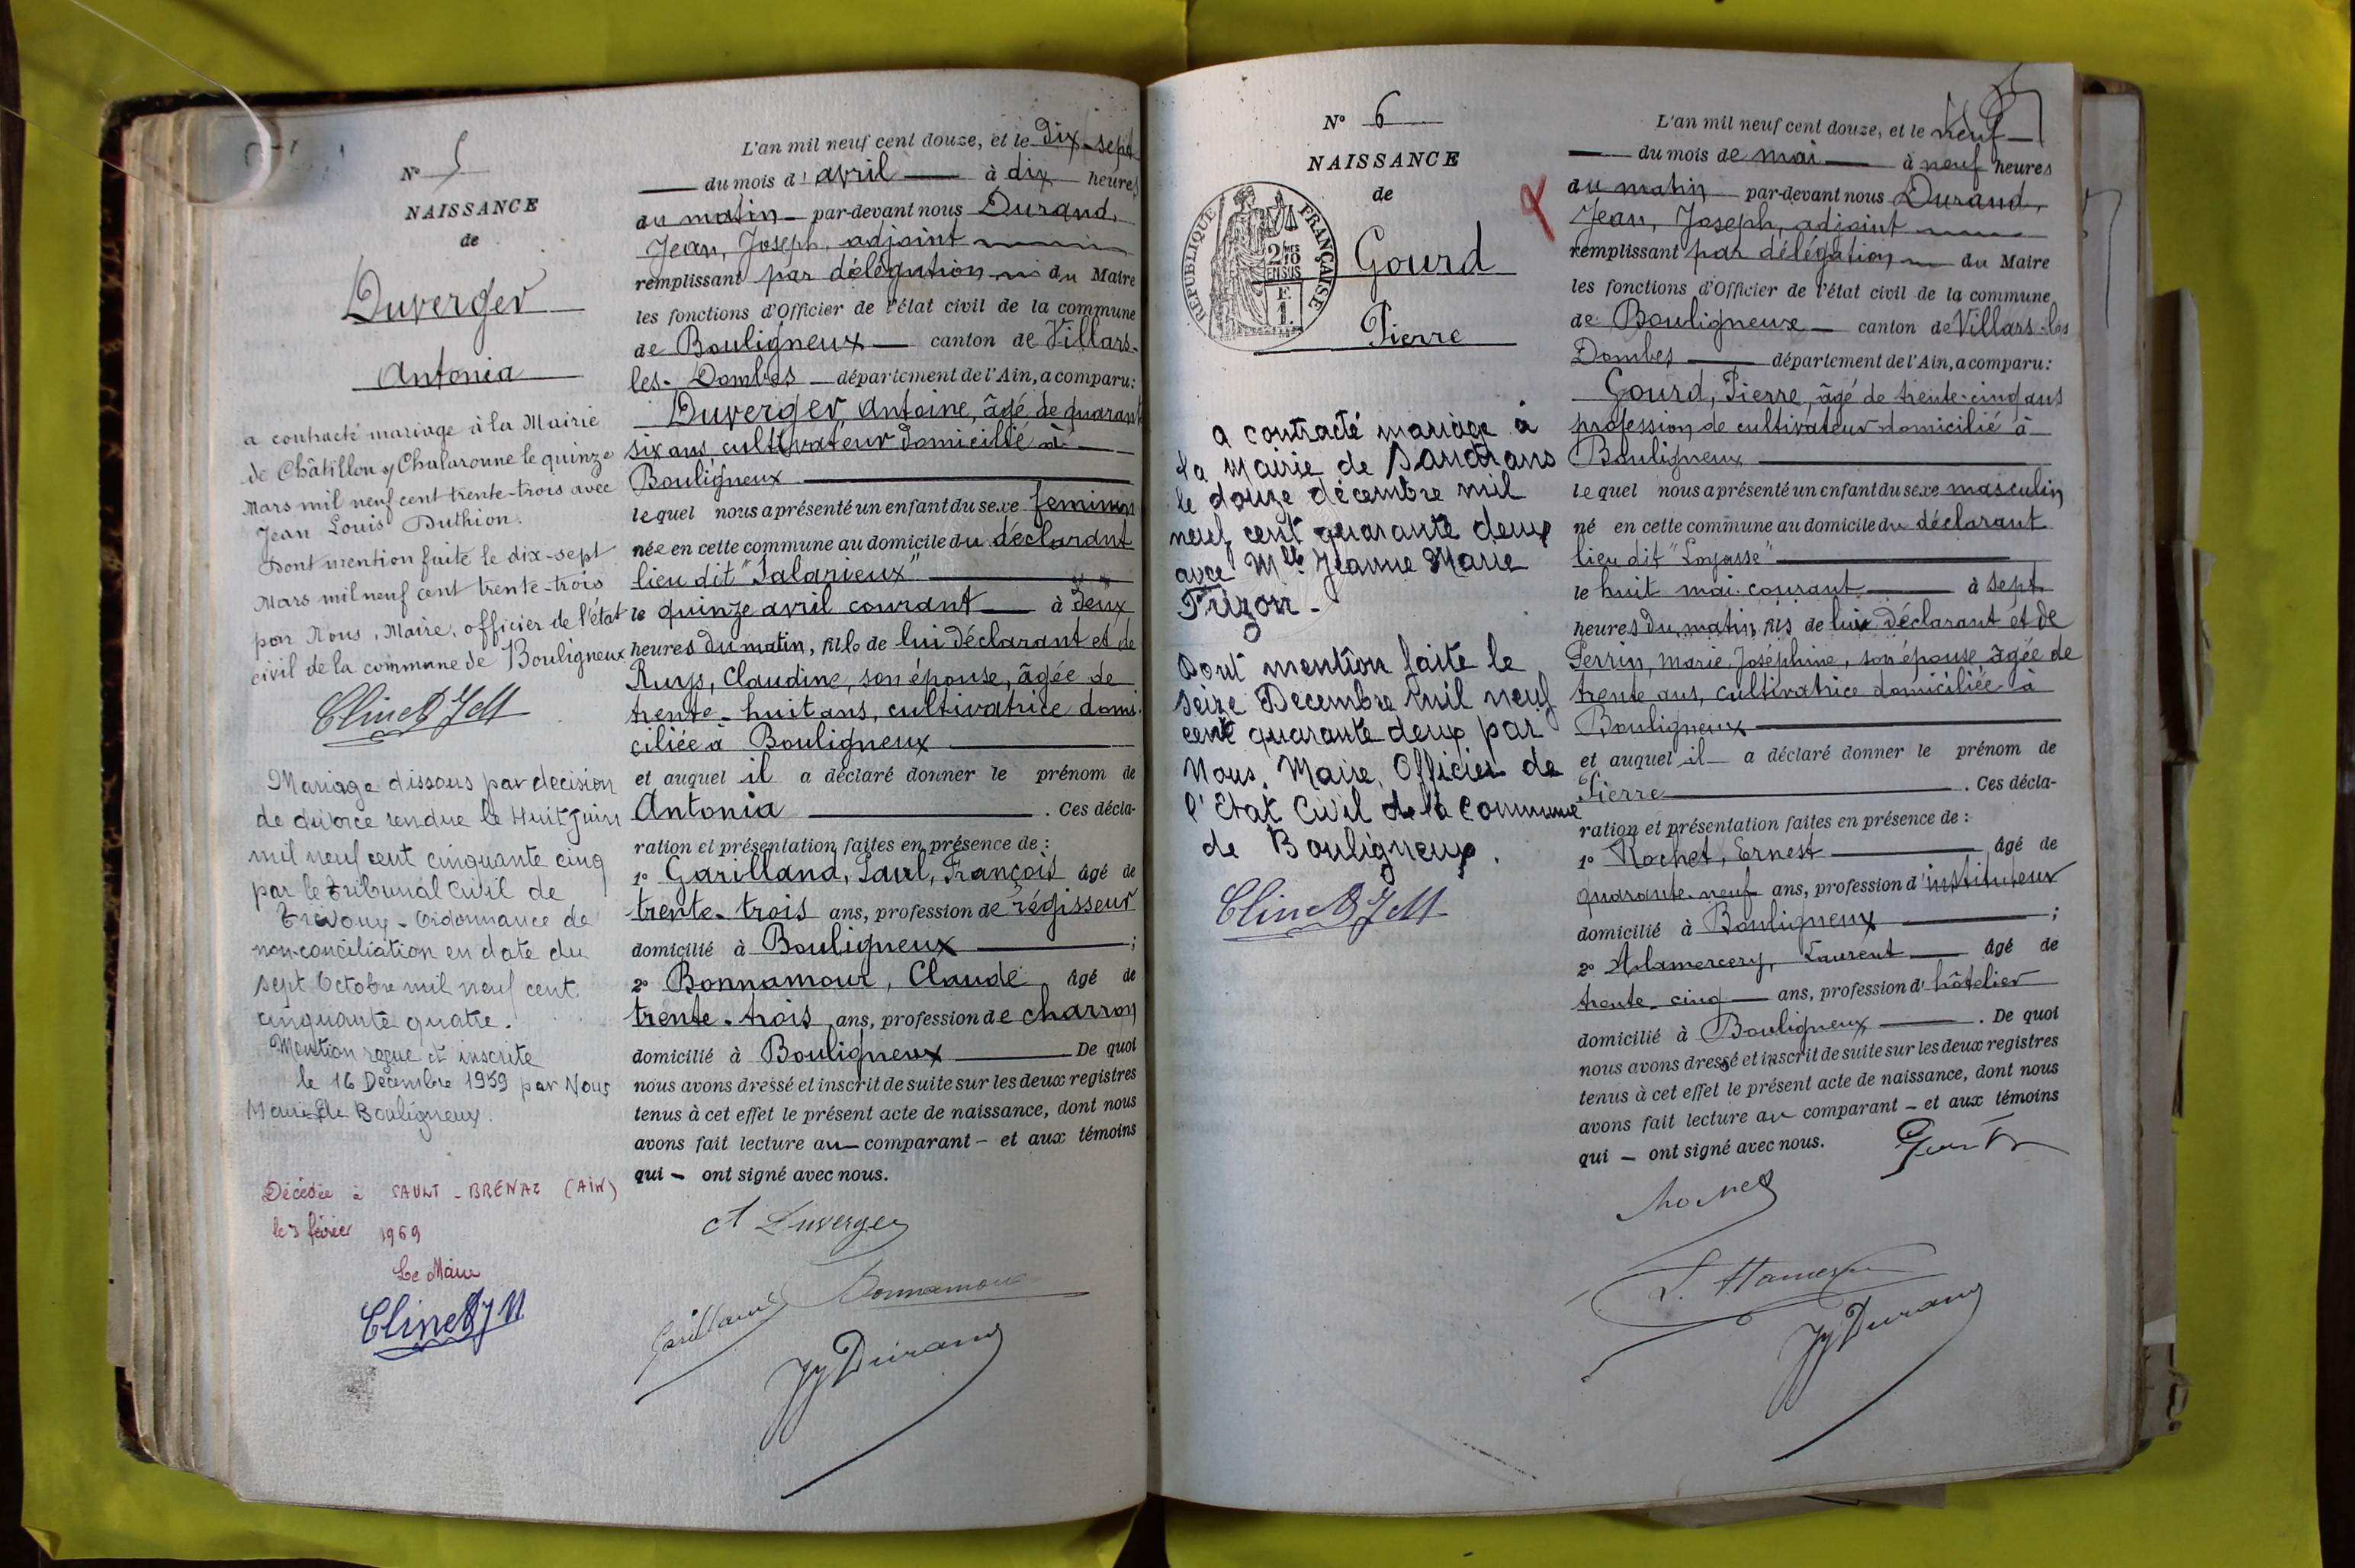 N° 5
NAISSANCE
de
Duverger
Antonia
a contracté mariage à la Mairie
de Châtillon s/ Chalaronne le quinze
Mars mil neuf cent trente-trois avec
Jean Louis Duthion.
Dont mention faite le dix-sept
Mars mil neuf cent trente-trois
par Nous, Maire, officier de l'état
civil de la commune de Bouligneux
Mariage dissous par decision
de divorce rendue le Huit Juin
mil neuf cent cinquante cinq
par le Tribunal Civil de
Trevoux - Ordonnance de
non-conciliation en date du
sept Octobre mil neuf cent
cinquante quatre.
Mention reçue et inscrite
le 16 Décembre 1959 par Nous
Maire de Bouligneux.
Décédée à SAULT-BRENAZ (AIN)
le 3 février 1969
Le Maire
L'an mil neuf cent douze, et le Dix-sept
du mois d'avril à dix heures
du matin par-devant nous Durand,
Jean, Joseph, adjoint
remplissant par délégation du Maire
les fonctions d'Officier de l'état civil de la commune
de Bouligneux canton de Villars-
les-Dombes département de l'Ain, a comparu:
Duverger, Antoine, âgé de quarante
six ans, cultivateur domicilié à
Bouligneux
lequel nous a présenté un enfant du sexe feminin
née en cette commune au domicile du déclarant
lieu dit "Palarieux"
le quinze avril courant à deux
heures du matin, fille de lui déclarant et de
Ruys, Claudine, son épouse, âgée de
trente-huit ans, cultivatrice domi-
ciliée à Bouligneux
et auquel il a déclaré donner le prénom de
Antonia . Ces décla-
ration et présentation faites en présence de :
1° Garilland, Paul, François âgé de
trente-trois ans, profession de régisseur
domicilié à Bouligneux ;
2° Bonnamour, Claude âgé de
trente-trois ans, profession de charron
domicilié à Bouligneux De quoi
nous avons dressé et inscrit de suite sur les deux registres
tenus à cet effet le présent acte de naissance, dont nous
avons fait lecture au comparant - et aux témoins
qui - ont signé avec nous.
A Duverger
Garilland Bonnamour
JJ Durand
N° 6
NAISSANCE
de
RÉPUBLIQUE FRANÇAISE
2/10
EN SUS
E.
1.
Gourd
Pierre
a contracté mariage à
la Mairie de Sandrans
le douze décembre mil
neuf cent quarante deux
avec Mlle Jeanne Marie
Frizon -
Dont mention faite le
seize Decembre mil neuf
cent quarante deux par
Nous, Maire, Officier de
l'Etat Civil de la Commune
de Bouligneux.
L'an mil neuf cent douze, et le neuf
du mois de mai à neuf heures
du matin par-devant nous Durand,
Jean, Joseph, adjoint
remplissant par délégation du Maire
les fonctions d'Officier de l'état civil de la commune
de Bouligneux canton de Villars-les
Dombes département de l'Ain, a comparu:
Gourd, Pierre, âgé de trente-cinq ans
profession de cultivateur domicilié à
Bouligneux
lequel nous a présenté un enfant du sexe masculin
né en cette commune au domicile du déclarant
lieu dit "Loyasse"
le huit mai courant à sept
heures du matin, fils de lui déclarant et de
Perrin, Marie Joséphine, son épouse, âgée de
trente ans, cultivatrice domiciliée à
Bouligneux
et auquel il a déclaré donner le prénom de
Pierre . Ces décla-
ration et présentation faites en présence de :
1° Rochet, Ernest âgé de
quarante-neuf ans, profession d'instituteur
domicilié à Bouligneux ;
2° Alamercery, Laurent âgé de
trente-cinq ans, profession d'hôtelier
domicilié à Bouligneux . De quoi
nous avons dressé et inscrit de suite sur les deux registres
tenus à cet effet le présent acte de naissance, dont nous
avons fait lecture au comparant - et aux témoins
qui - ont signé avec nous.
JJ Durand